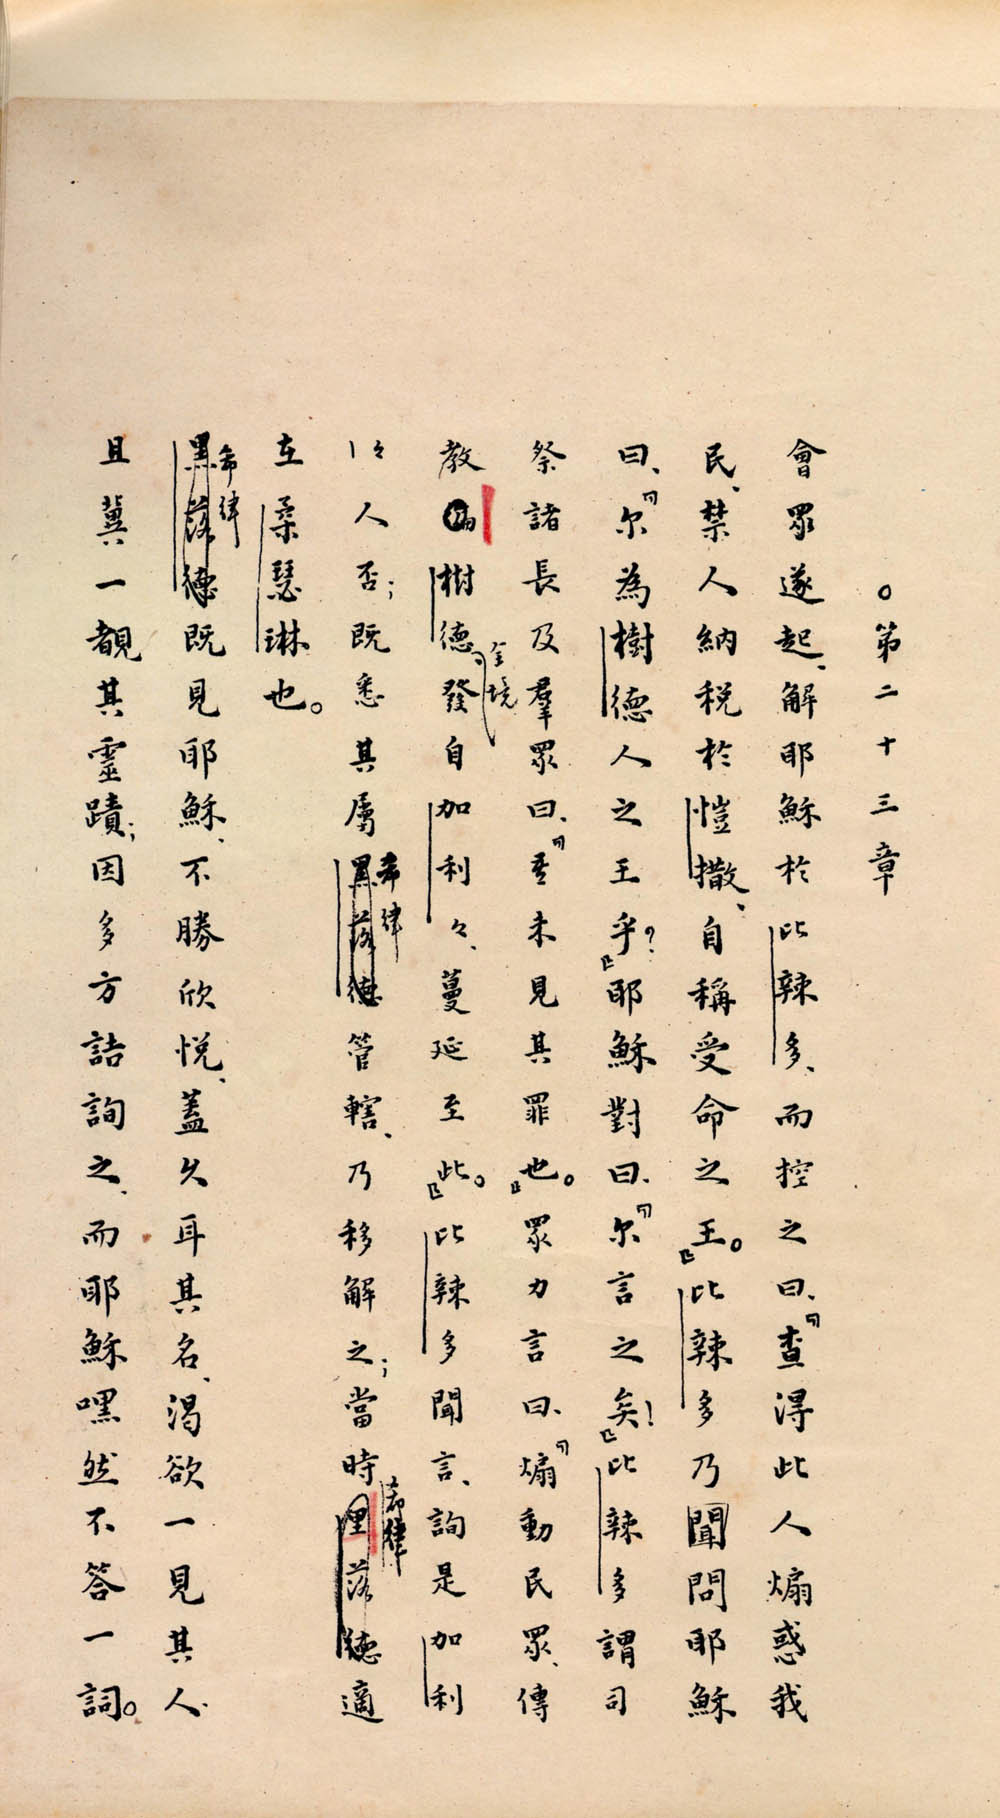 。第二十三章
會眾遂起、解耶穌於比辣多、而控之曰、「查得此人煽惑我
民、禁人納税於愷撒、自稱受命之王。」比辣多乃聞問耶穌
曰、「尔為樹德人之王乎?」耶穌對曰、「尔言之矣!」比辣多謂司
祭諸長及羣眾曰、「吾未見其罪也。」眾力言曰、「煽動民眾、傳
教徧樹德、
全境
發自加利々、蔓延至此。」比辣多聞言、詢是加利
々人否;既悉其屬黑落德
希律
管轄、乃移解之;當時黑落德
希律
適
在柔瑟琳也。
黑落德
希律
既見耶穌、不勝欣悦、蓋久耳其名、渴欲一見其人、
且冀一覩其靈蹟;因多方詰詢之、而耶穌嘿然不答一詞。